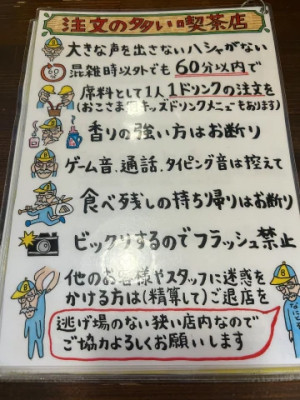 注文の多い喫茶店
大きな声を出さないハシャがない
混雑時以外でも60分以内で
席料として1人1ドリンクの注文を
(おこさま用キッズドリンクメニューもあります)
香りの強い方はお断り
ゲーム音、通話、タイピング音は控えて
食べ残しの持ち帰りはお断り
ビックリするのでフラッシュ禁止
他のお客様やスタッフに迷惑を
かける方は(精算して)ご退店を
逃げ場のない狭い店内なので
ご協力よろしくお願いします